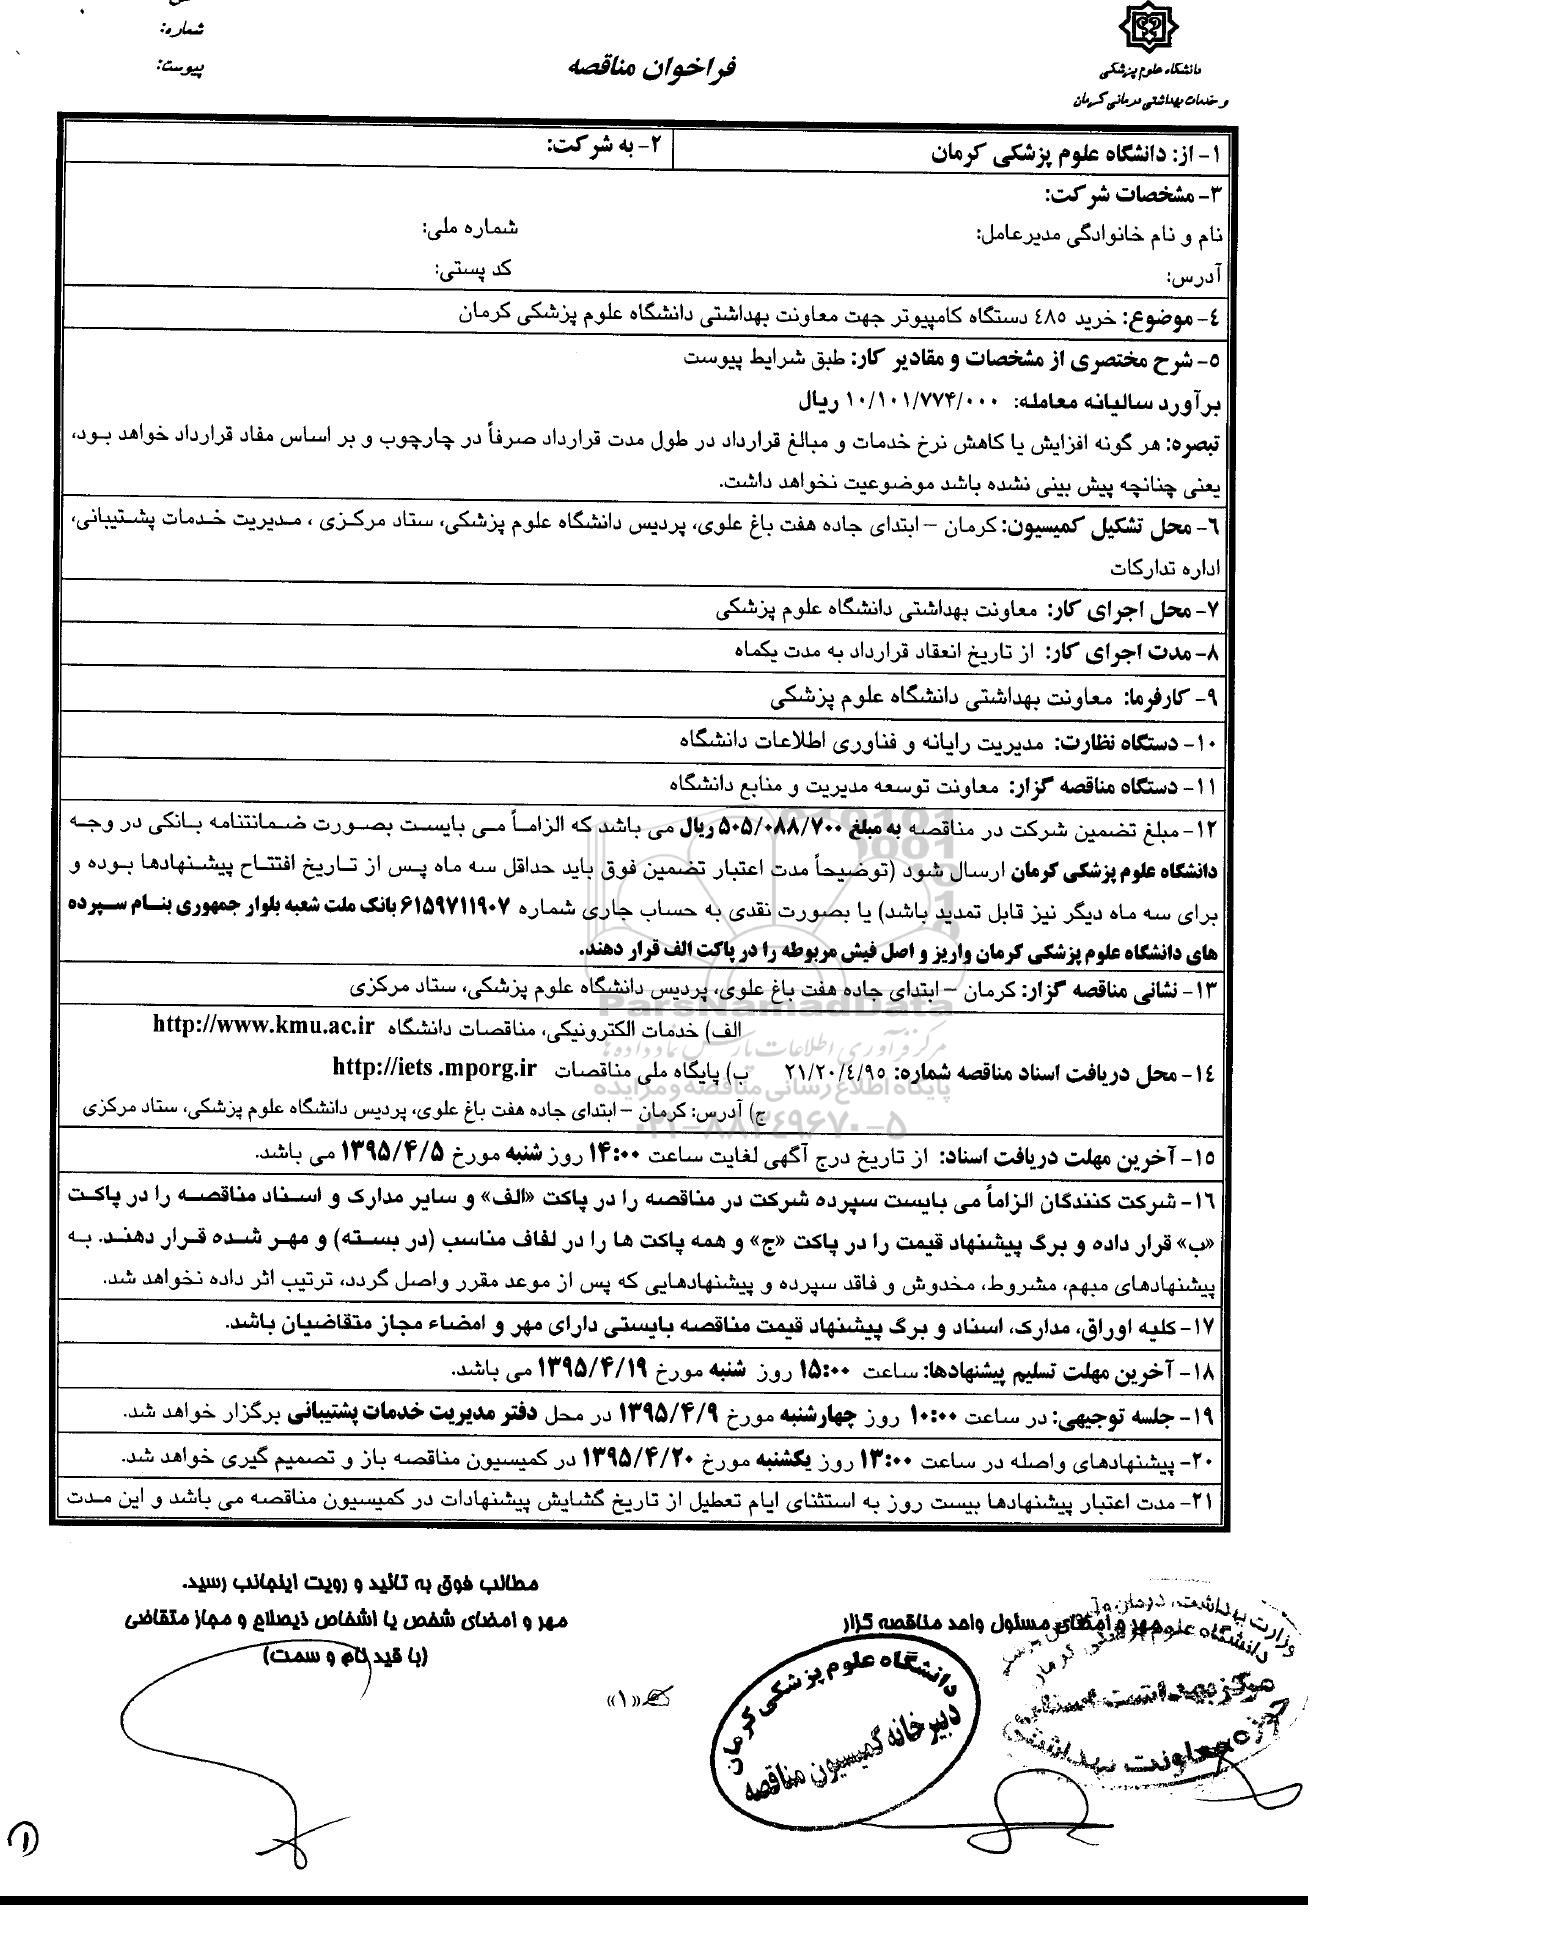 شماره:
پیوست:
فراخوان مناقصه
دانشگاه علوم پزشکی
و خدمات بهداشتی درمانی کرمان
۱- از: دانشگاه علوم پزشکی کرمان
۲- به شرکت:
۳- مشخصات شرکت:
نام و نام خانوادگی مدیرعامل: شماره ملی:
آدرس: کد پستی:
۴- موضوع: خرید ۴۸۵ دستگاه کامپیوتر جهت معاونت بهداشتی دانشگاه علوم پزشکی کرمان
۵- شرح مختصری از مشخصات و مقادیر کار: طبق شرایط پیوست
برآورد سالیانه معامله: ۱۰/۱۰۱/۷۷۴/۰۰۰ ریال
تبصره: هر گونه افزایش یا کاهش نرخ خدمات و مبالغ قرارداد در طول مدت قرارداد صرفاً در چارچوب و بر اساس مفاد قرارداد خواهد بود،
یعنی چنانچه پیش بینی نشده باشد موضوعیت نخواهد داشت.
۶- محل تشکیل کمیسیون: کرمان – ابتدای جاده هفت باغ علوی، پردیس دانشگاه علوم پزشکی، ستاد مرکزی ، مدیریت خدمات پشتیبانی،
اداره تدارکات
۷- محل اجرای کار: معاونت بهداشتی دانشگاه علوم پزشکی
۸- مدت اجرای کار: از تاریخ انعقاد قرارداد به مدت یکماه
۹- کارفرما: معاونت بهداشتی دانشگاه علوم پزشکی
۱۰- دستگاه نظارت: مدیریت رایانه و فناوری اطلاعات دانشگاه
۱۱- دستگاه مناقصه گزار: معاونت توسعه مدیریت و منابع دانشگاه
۱۲- مبلغ تضمین شرکت در مناقصه به مبلغ ۵۰۵/۰۸۸/۷۰۰ ریال می باشد که الزاماً می بایست بصورت ضمانتنامه بانکی در وجه
دانشگاه علوم پزشکی کرمان ارسال شود (توضیحاً مدت اعتبار تضمین فوق باید حداقل سه ماه پس از تاریخ افتتاح پیشنهادها بوده و
برای سه ماه دیگر نیز قابل تمدید باشد) یا بصورت نقدی به حساب جاری شماره ۶۱۵۹۷۱۱۹۰۷ بانک ملت شعبه بلوار جمهوری بنام سپرده
های دانشگاه علوم پزشکی کرمان واریز و اصل فیش مربوطه را در پاکت الف قرار دهند.
۱۳- نشانی مناقصه گزار: کرمان – ابتدای جاده هفت باغ علوی، پردیس دانشگاه علوم پزشکی، ستاد مرکزی
ParsNamadData
الف) خدمات الکترونیکی، مناقصات دانشگاه http://www.kmu.ac.ir
مرکز فرآوری اطلاعات پارس نماد داده ها
۱۴- محل دریافت اسناد مناقصه شماره: ۲۱/۲۰/۴/۹۵ ب) پایگاه ملی مناقصات http://iets .mporg.ir
پایگاه اطلاع رسانی مناقصه و مزایده
ج) آدرس: کرمان – ابتدای جاده هفت باغ علوی، پردیس دانشگاه علوم پزشکی، ستاد مرکزی
۰۲۱-۸۸۳۴۹۶۷۰-۵
۱۵- آخرین مهلت دریافت اسناد: از تاریخ درج آگهی لغایت ساعت ۱۴:۰۰ روز شنبه مورخ ۱۳۹۵/۴/۵ می باشد.
۱۶- شرکت کنندگان الزاماً می بایست سپرده شرکت در مناقصه را در پاکت «الف» و سایر مدارک و اسناد مناقصه را در پاکت
«ب» قرار داده و برگ پیشنهاد قیمت را در پاکت «ج» و همه پاکت ها را در لفاف مناسب (در بسته) و مهر شده قرار دهند. به
پیشنهادهای مبهم، مشروط، مخدوش و فاقد سپرده و پیشنهادهایی که پس از موعد مقرر واصل گردد، ترتیب اثر داده نخواهد شد.
۱۷- کلیه اوراق، مدارک، اسناد و برگ پیشنهاد قیمت مناقصه بایستی دارای مهر و امضاء مجاز متقاضیان باشد.
۱۸- آخرین مهلت تسلیم پیشنهادها: ساعت ۱۵:۰۰ روز شنبه مورخ ۱۳۹۵/۴/۱۹ می باشد.
۱۹- جلسه توجیهی: در ساعت ۱۰:۰۰ روز چهارشنبه مورخ ۱۳۹۵/۴/۹ در محل دفتر مدیریت خدمات پشتیبانی برگزار خواهد شد.
۲۰- پیشنهادهای واصله در ساعت ۱۳:۰۰ روز یکشنبه مورخ ۱۳۹۵/۴/۲۰ در کمیسیون مناقصه باز و تصمیم گیری خواهد شد.
۲۱- مدت اعتبار پیشنهادها بیست روز به استثنای ایام تعطیل از تاریخ گشایش پیشنهادات در کمیسیون مناقصه می باشد و این مدت
مطالب فوق به تائید و رویت اینجانب رسید.
مهر و امضای شخص یا اشخاص ذیصلاح و مجاز متقاضی
(با قید نام و سمت)
مهر و امضای مسئول واحد مناقصه گزار
دانشگاه علوم پزشکی کرمان
دبیرخانه کمیسیون مناقصه
وزارت بهداشت، درمان
دانشگاه علوم پزشکی کرمان
مرکز بهداشت
حوزه معاونت بهداشتی
«۱»
۱